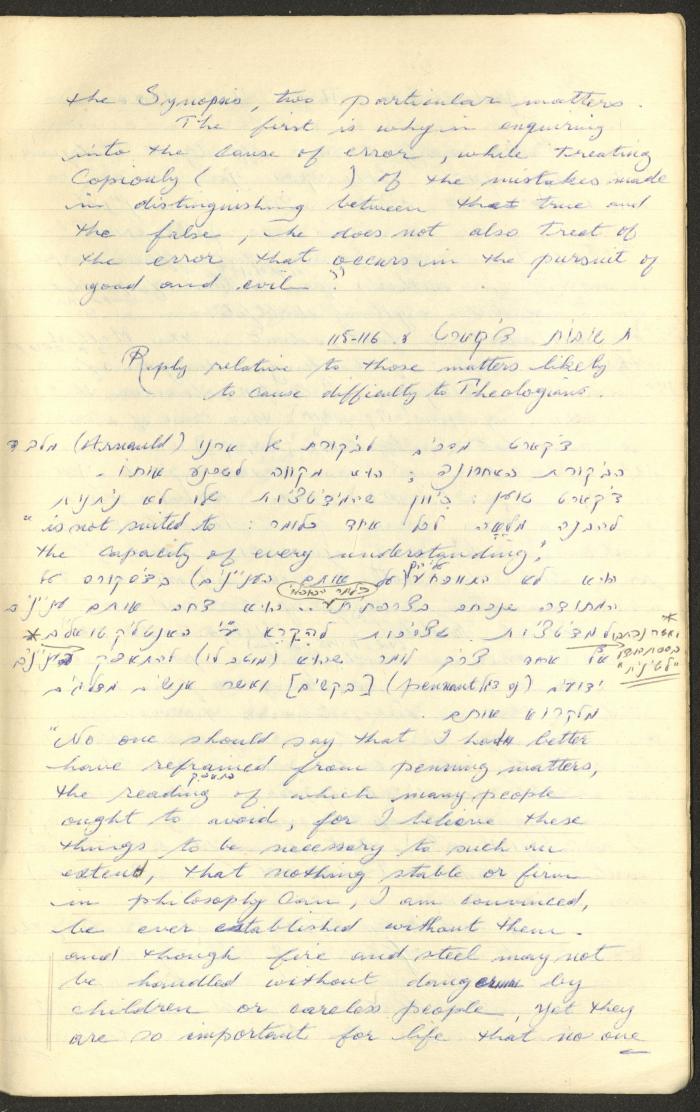 the Synopsis, two particular matters.
The first is why in enquiring
into the cause of error, while treating
Copiouly (          ) of the mistakes made
in distinguishing between that true and
the false, he does not also treat of
the error that occurs in the pursuit of
good and evil ?"
תשובות דקארט ע 115-116
Reply relative to those matters likely
to cause difficulty to Theologians.
דקארט מסכים לביקורת של ארנו (Arnauld) מלבד
הביקורת האחרונה; הוא מקווה לשכנע אותו.
דקארט טוען: כיוון שהמדיטציות שלו לא ניתנות
להבנה מלאה לכל אחד כלומר: "is not suited to
the capacity of every understanding,"
הוא לא התווכח על אותם העניינים) בדיסקורס על
המתודה
למדיטציות שצריכות להקרא ע"י האנטלקטואלים *
אף אחד צריך לומר שהוא (מוטב לו) להתאפק
ידועים (of penna) [בקשים] ואשר אנשים
מלקרוא אותם.
"No one should say that I had better
have refrained from penning matters,
the reading of which many people
ought to avoid, for I believe these
things to be necessary to such an
extent, that nothing stable or firm
in philosophy can, I am convinced,
be ever established without them.
and though fire and steel may not
be handled without danger by
children or careless people, yet they
are so important for life that no one